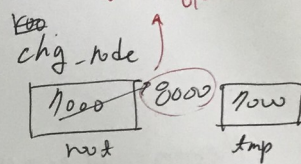 chg_node
7000 8000 7000
root tmp